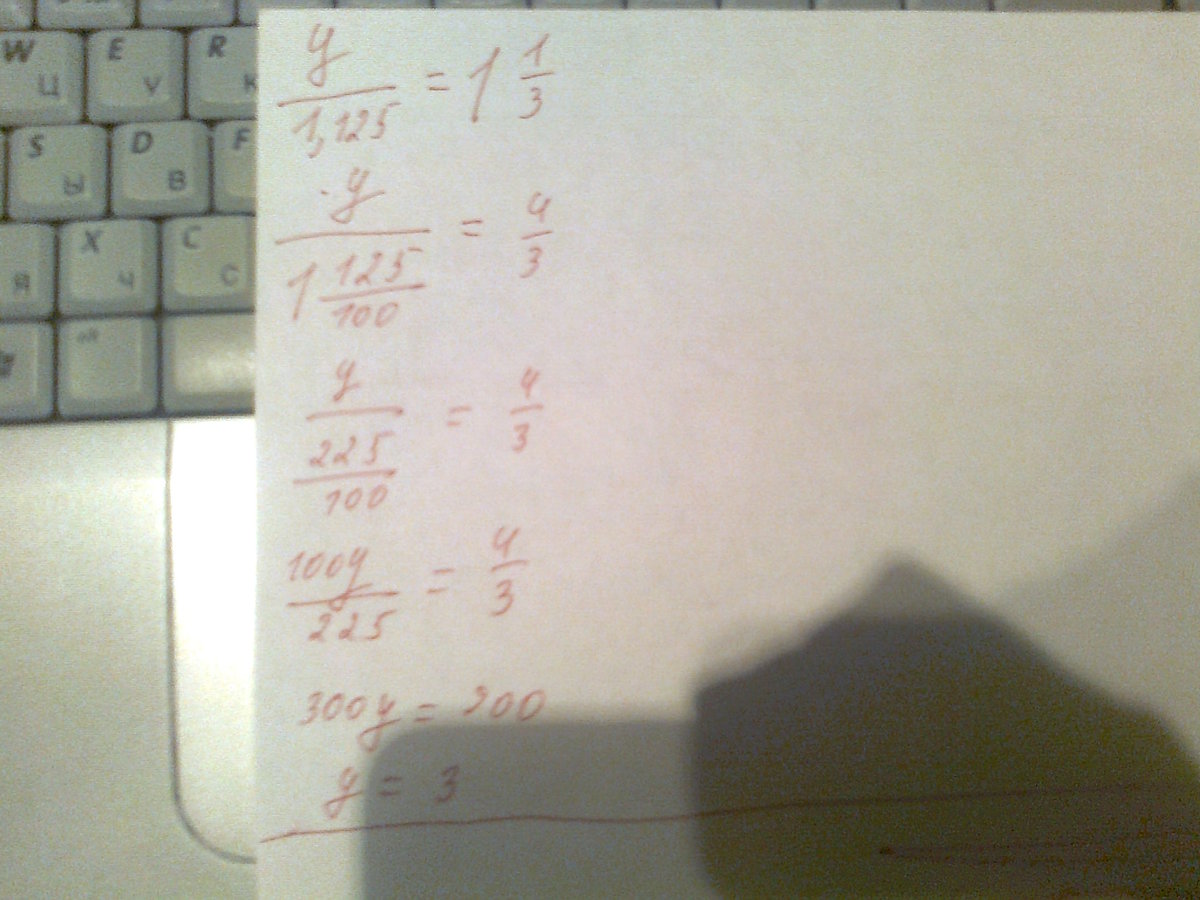 W Ц E У R К
S Ы D В F
Я X Ч C С
alt
y/1,125 = 1 1/3
y/(1 125/100) = 4/3
y/(225/100) = 4/3
100y/225 = 4/3
300y = 900
y = 3